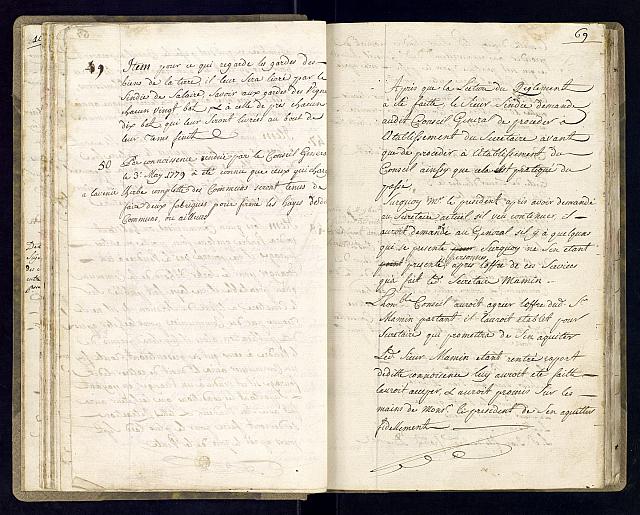 49 Item pour ce qui regarde les gardes des
biens de la terre, il leur sera livré par le
Sindic de Salaire, savoir aux gardes des vignes
chacun vingt bat. & à celle de près chacun
dix bat. qui leur seront livrées au bout de
leur tems finit
50 Par connoissence rendue par le Conseil General
le 3e May 1779 à été connue que ceux qui charg
a l'avenir l'herbe complette des Communs seront tenus de
faire deux fabriques pour fermé les hayes desd
Communs, ou ailleurs
69
Après que la Lecture du Reglement
à été faitte, le Sieur Sindic demande
audit Conseil General de proceder à
l'établissement du Secretaire avant
que de proceder à l'établissement du
Conseil ainsy que cela est pratiqué du
passé
Surquoy Mr. le président apres avoir demandé
au Secretaire actuel s'il veu continuer, il
auroit demandé au General s'il y à quelquns
que se presente Surquoy ne s'en étant
presenté personnes après l'offre de ces Services
qu'à fait led. Secretaire Mamin
L'hon.ble Conseil auroit agréer l'offre dud. Sr
Mamin partant il l'auroit établet pour
Secretaire qui promettra de s'en aquiter
Led. Sieur Mamin étant rentré rapport
deditte connoissence luy auroit été faitte
l'auroit acceper, & auroit promis Sur les
mains de Monsr. le président de s'en aquitter
fidellement